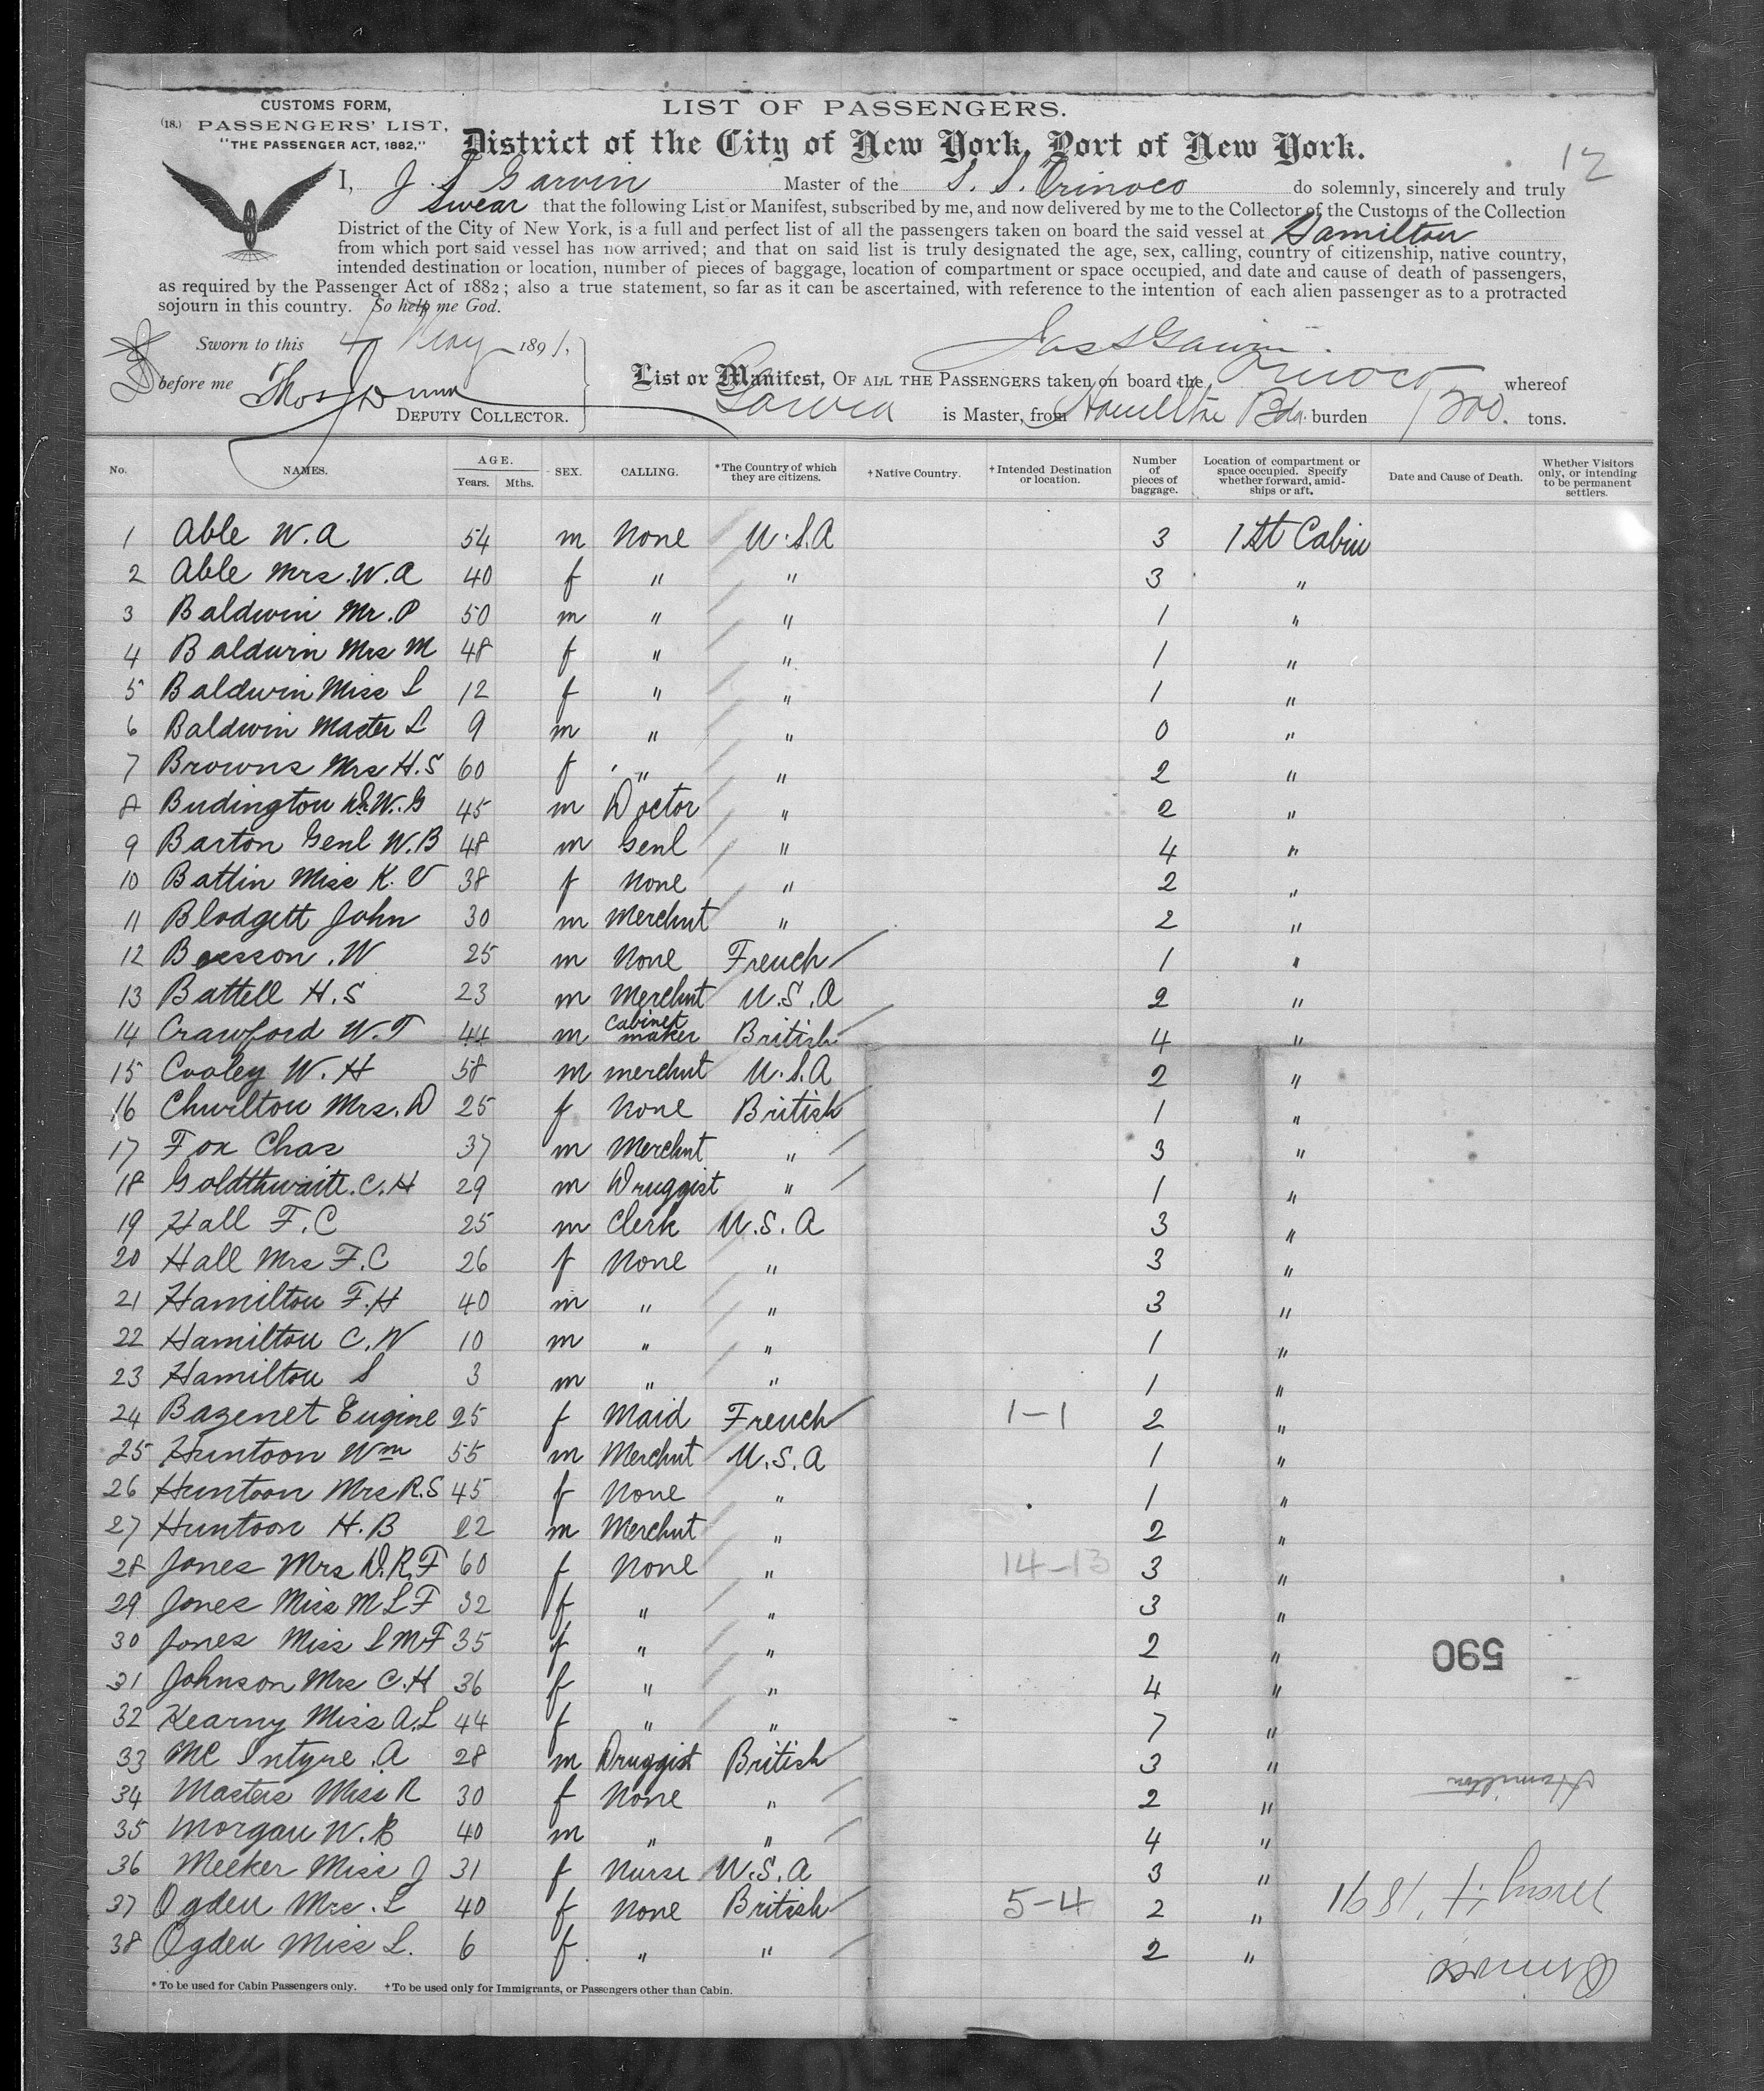 CUSTOMS FORM,
(18.) PASSENGERS' LIST,
"THE PASSENGER ACT, 1882."
LIST OF PASSENGERS.
District of the City of New York, Port of New York.
12
I, J. S. Garvin Master of the S. S. Orinoco do solemnly, sincerely and truly
swear that the following List or Manifest, subscribed by me, and now delivered by me to the Collector of the Customs of the Collection
District of the City of New York, is a full and perfect list of all the passengers taken on board the said vessel at Hamilton
from which port said vessel has now arrived; and that on said list is truly designated the age, sex, calling, country of citizenship, native country,
intended destination or location, number of pieces of baggage, location of compartment or space occupied, and date and cause of death of passengers,
as required by the Passenger Act of 1882; also a true statement, so far as it can be ascertained, with reference to the intention of each alien passenger as to a protracted
sojourn in this country. So help me God.
Jas S Garvin.
Sworn to this 4 May 1891,
before me Thos Dunn
DEPUTY COLLECTOR.
List or Manifest, OF ALL THE PASSENGERS taken on board the Orinoco whereof
Garvin is Master, from Hamilton Bda. burden 1200. tons.
No. NAMES. AGE. Years. Mths. SEX. CALLING. *The Country of which they are citizens. †Native Country. †Intended Destination or location. Number of pieces of baggage. Location of compartment or space occupied. Specify whether forward, amidships or aft. Date and Cause of Death. Whether Visitors only, or intending to be permanent settlers.
1 Able W. A 54 m None U.S.A 3 1st Cabin
2 Able Mrs. W. A 40 f " " 3 "
3 Baldwin Mr. P 50 m " " 1 "
4 Baldwin Mrs M 48 f " " 1 "
5 Baldwin Miss L 12 f " " 1 "
6 Baldwin Master L 9 m " " 0 "
7 Browns Mrs H.S 60 f " " 2 "
8 Budington Dr. W. G 45 m Doctor " 2 "
9 Barton Genl W.B 48 m Genl " 4 "
10 Battin Miss K. V 38 f None " 2 "
11 Blodgett John 30 m Merchnt " 2 "
12 Besson . W 25 m None French 1 "
13 Battell H. S 23 m Merchnt U.S.A 2 "
14 Crawford W. T 44 m Cabinet maker British 4 "
15 Cooley W. H 58 m merchnt U.S.A 2 "
16 Churlton Mrs. D 25 f None British 1 "
17 Fox Chas 37 m Merchnt " 3 "
18 Goldthwaite. C. H 29 m Druggist " 1 "
19 Hall F. C 25 m Clerk U.S.A 3 "
20 Hall Mrs F. C 26 f None " 3 "
21 Hamilton F. H 40 m " " 3 "
22 Hamilton C. W 10 m " " 1 "
23 Hamilton S 3 m " " 1 "
24 Bazenet Eugine 25 f Maid French 1-1 2 "
25 Huntoon Wm 55 m Merchnt U.S.A 1 "
26 Huntoon Mrs R.S 45 f None " 1 "
27 Huntoon H. B 22 m Merchnt " 2 "
28 Jones Mrs D.R.F 60 f None " 14-13 3 "
29 Jones Miss M L F 32 f " " 3 "
30 Jones Miss S M F 35 f " " 2 "
31 Johnson Mrs C. H 36 f " " 4 "
32 Kearny Miss A. L 44 f " " 7 "
33 Mc Intyre . A 28 m Druggist British 3 "
34 Masters Miss R 30 f None " 2 "
35 Morgan W. B 40 m " " 4 "
36 Meeker Miss J 31 f Nurse U.S.A 3 "
37 Ogden Mrs. L 40 f None British 5-4 2 "
38 Ogden Miss L. 6 f " " 2 "
590
Hamilton
May 4th 1891
Orinoco
* To be used for Cabin Passengers only. †To be used only for Immigrants, or Passengers other than Cabin.